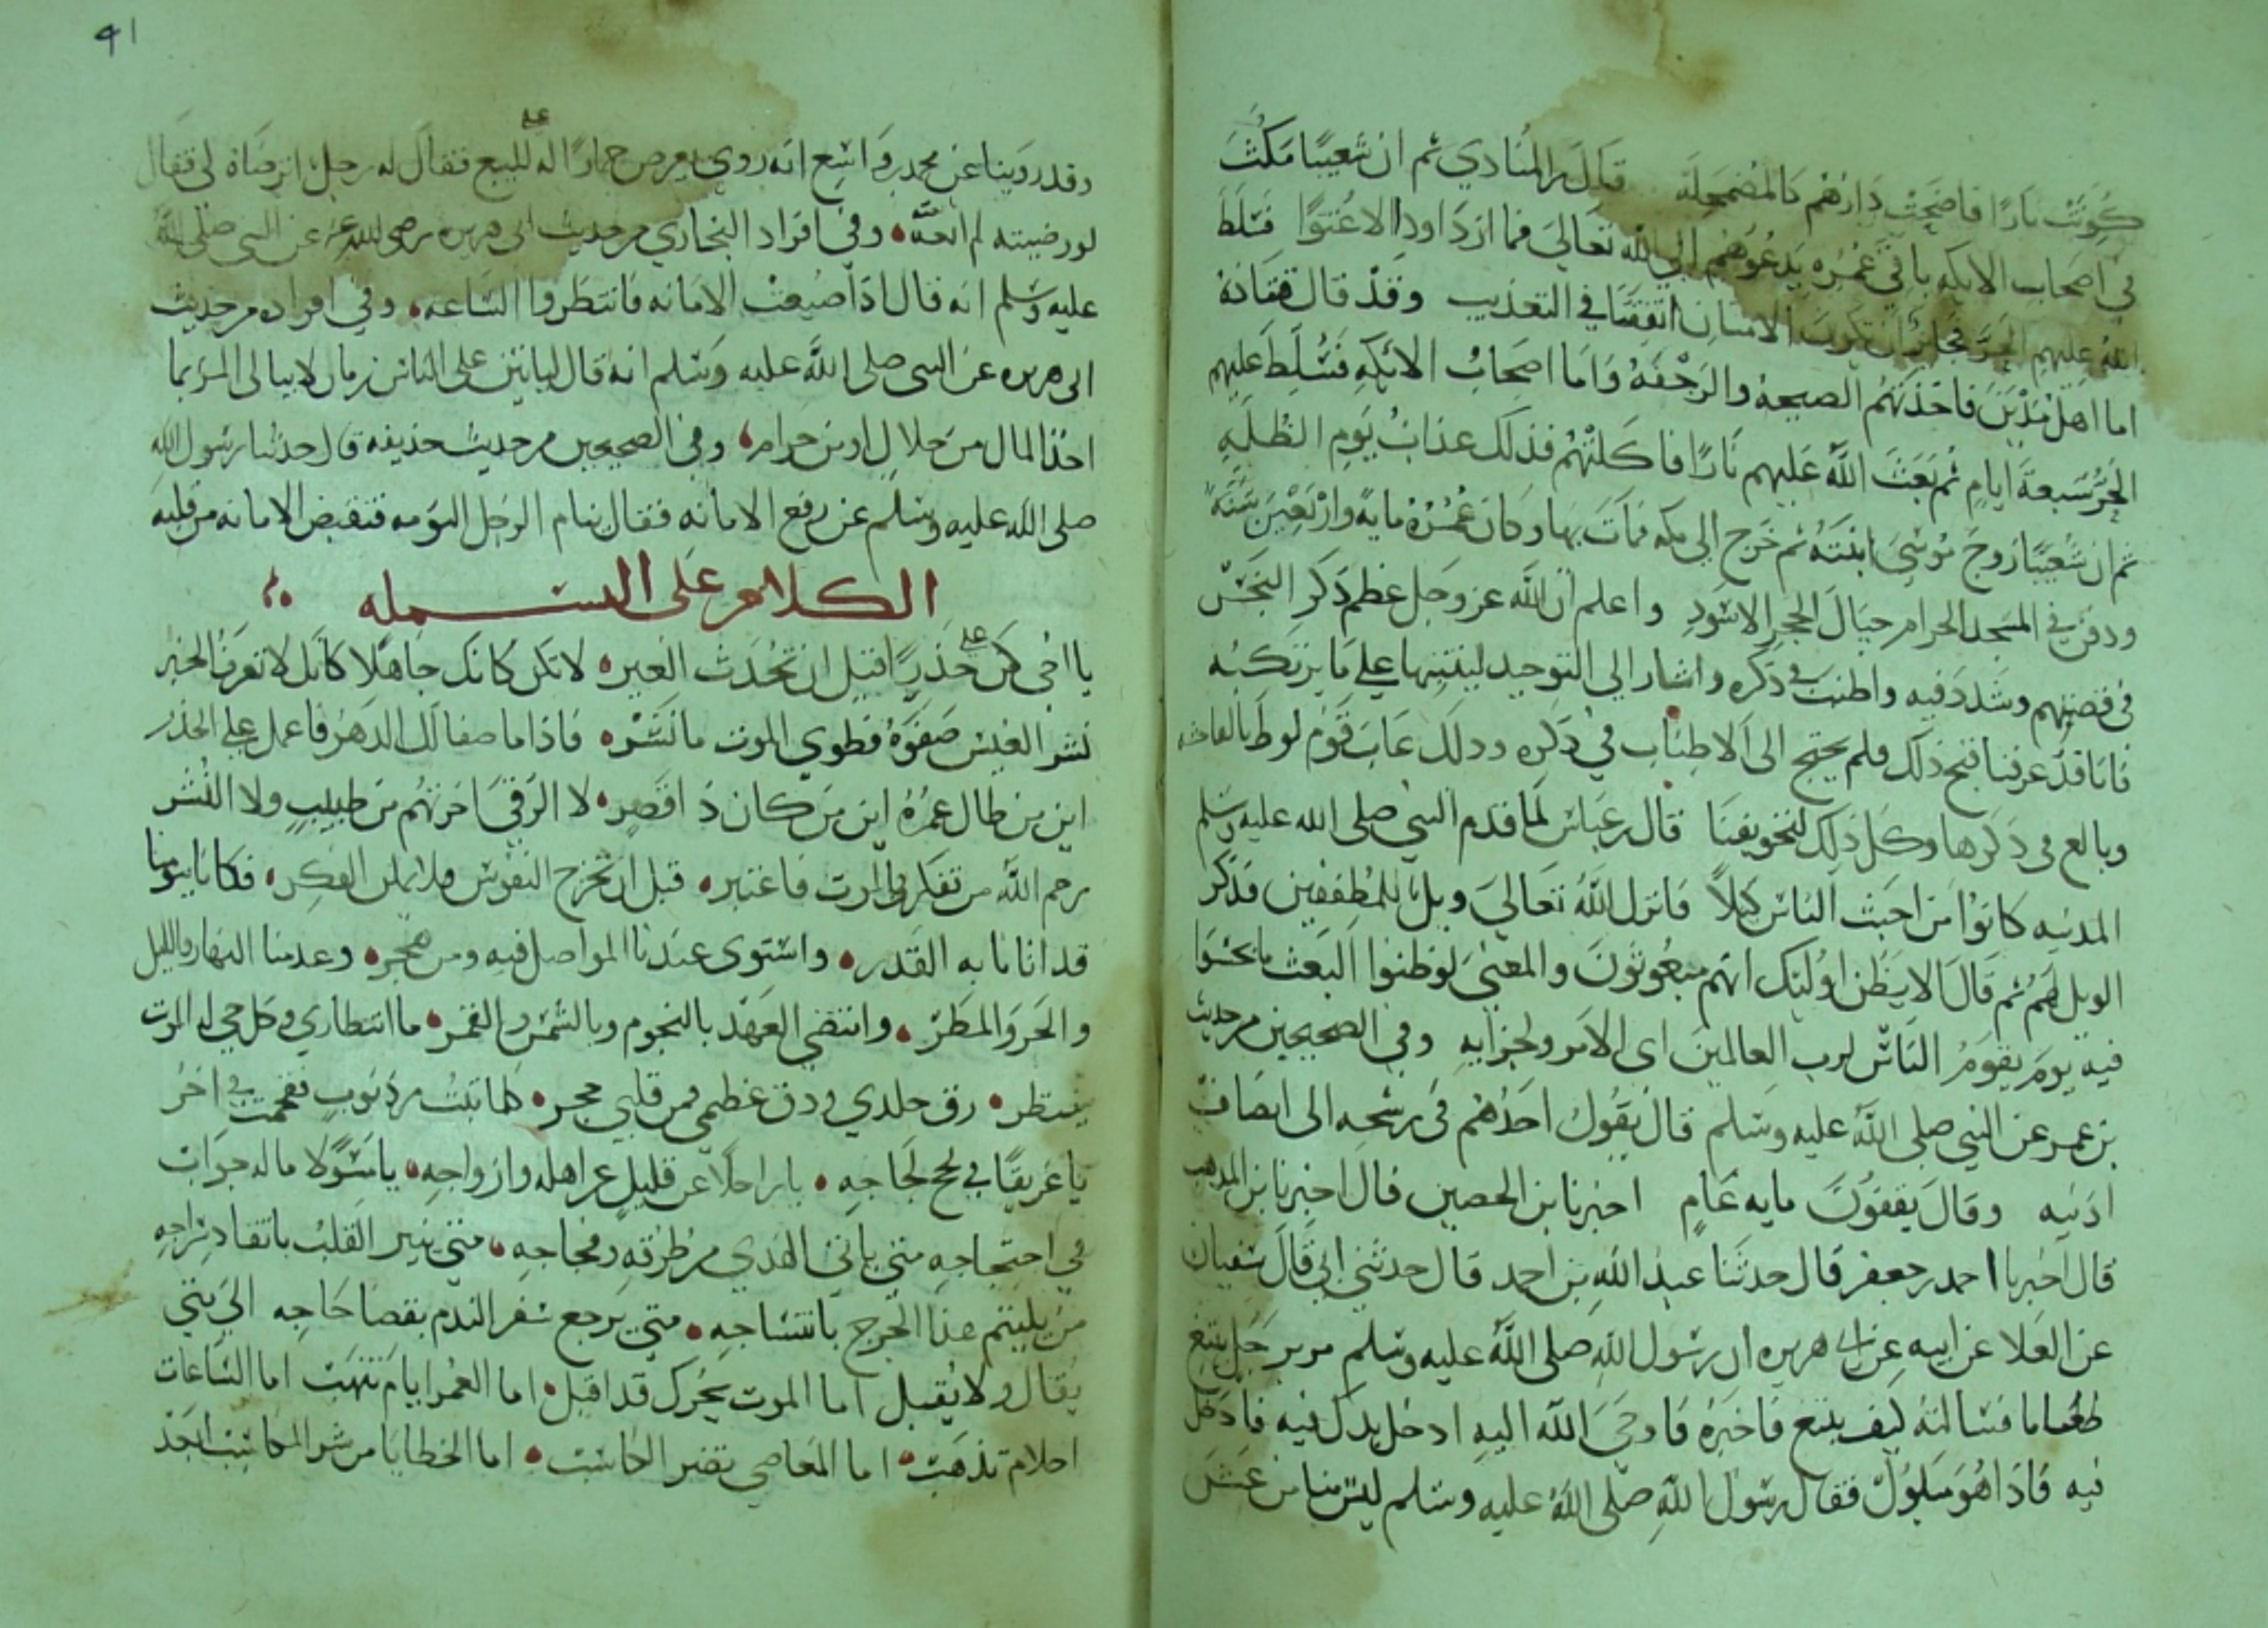 كُوِيَتْ نارًا فاصبحت دارهم كالمضمحله قال بن المنادي ثم ان شعيبًا مَكُثَ
في اصحاب الايكه باقي عُمُره يدعوهم الي الله تعالي فما ازدادوا الا عُتوًا فسَلط
الله عليهم الحر فجايز ان تكون الامتان اتفقتا في التعذيب وقد قال قتادة
اما اهل مَدْيَنَ فاخذتهم الصيحة والرجفة واما اصحاب الائكه فسُلط عليهم
الحرُّ سبعة ايامٍ ثم بعث الله عليهم نارًا فاكلتهم فذلك عذابُ يومِ الظلهِ
ثم ان شعيبًا زوج موسي ابنته ثم خرج الي مكه فمات بها وكان عُمُرُهُ مايةً واربعين سنة
ودفن في المسجد الحرام حيال الحجر الاسود واعلم ان الله عز وجل عظم ذكر البخس
في قصتهم وشدد فيه واطنب في ذكره واشار الي التوحيد لينتبها علي ما يرتكبُه
فانا قد عرفنا قبح ذلك فلم يحتج الى الاطناب في ذكره وذلك عاب قوم لوط بالفاحشه
وبالغ في ذكرها وكل ذلك لتخويفنا قال بن عباس لما قدم النبي صلى الله عليه وسلم
المدينه كانوا من اخبث الناس كيلاً فانزل الله تعالي ويلٌ للمطففين فذكر
الويل لهم ثم قال الا يظن اولئك انهم مبعوثون والمعني لو ظنوا البعث ما بخسوا
فيه يوم يقوم الناس لرب العالمين اى الامر ولجزايه وفي الصحيحين من حديث
بن عمر عن النبي صلى الله عليه وسلم قال يقوم احدهم في رشحه الى انصاف
اذنيه وقال يقفون مايه عامٍ اخبرنا بن الحصين قال اخبرنا بن المذهب
قال اخبرنا احمد بن جعفر قال حدثنا عبد الله بن احمد قال حدثني ابي قال سفيان
عن العلا عن ابيه عن ابي هريره ان رسول الله صلى الله عليه وسلم مر برجل يبتع
طعاما فساله كيف يبتع فاخبره فاوحي الله اليه ادخل يدك فيه فادخل
فيه فاذا هو مبلول فقال رسول الله صلى الله عليه وسلم ليس منا من غش
41
وقد روينا عن محمد بن واسع انه روي يعرض حمارًا له للبيع فقال له رجل اترضاه لي فقال
لو رضيته لم ابعه وفي افراد البخاري من حديث ابي هريره رضي الله عنه عن النبي صلى الله
عليه وسلم انه قال اذا ضيعت الامانه فانتظروا الساعه وفي افراده من حديث
ابي هريره عن النبي صلى الله عليه وسلم انه قال لياتين على الناس زمان لا يبالي المرؤ بما
اخذ المال من حلالٍ او من حرامٍ وفي الصحيحين من حديث حذيفه قال حدثنا رسول الله
صلى الله عليه وسلم عن رفع الامانه فقال ينام الرجل النومه فتقبض الامانه من قلبه
الكلام على البسمله
يا اخي كن علي حذرٍ قبل ان تحدث العبر لا تكن كانك جاهلا كانك لا تعرف الخبر
نشر العيش صفوهُ فطوي الموت ما نشر فاذا ما صفا لك الدهر فاعمل علي الحذر
اين من طال عمره اين من كان ذا قصر لا الرقي اخرتهم من طبيبٍ ولا النشر
رحم الله من تفكر في الموت فاعتبر قبل ان تخرج النفوس فلا يمكن الفكر فكانا بيومنا
قد اتانا به القدر واستوي عندنا المواصل فيه ومن هجر وعدمنا النهار والليل
والحر والمطر وانقضي العهد بالنجوم وبالشمس والقمر ما انتظاري وكل حي له الموت
ينتظر رق جلدي ودق عظمي فمن قلبي حجر كلما تبت من ذنوبٍ تقحمت في اخر
يا غريقًا في لجج لجاجه يا راحلاً عن قليلٍ عن اهله وازواجه يا مسؤلا ما له جواب
في احتجاجه متي ياتي الهدي من طرقه وفجاجه متي ينير القلب باتقاد سراجه
متي يلتيم هذا الجرح بانتساجه متي يرجع سفر الندم بقضا حاجه الي متي
يقال ولا يُقبل اما الموت نحوك قد اقبل اما العمر ايام تنتهب اما الساعات
احلام تذهب اما المعاصي تضر الكاسب اما الخطايا من شر المكاسب ابعد